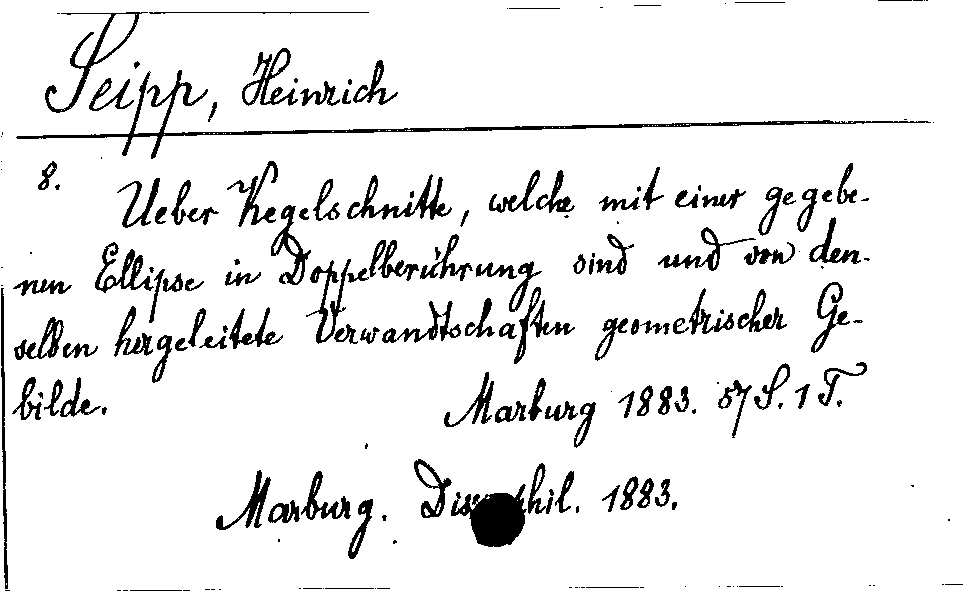 Seipp, Heinrich
8. Ueber Kegelschnitte, welche mit einer gegebe-
nen Ellipse in Doppelberührung sind und von den-
selben hergeleitete Verwandtschaften geometrischer Ge-
bilde.
Marburg 1883. 57 S. 1 T.
Marburg. Diss. phil. 1883.